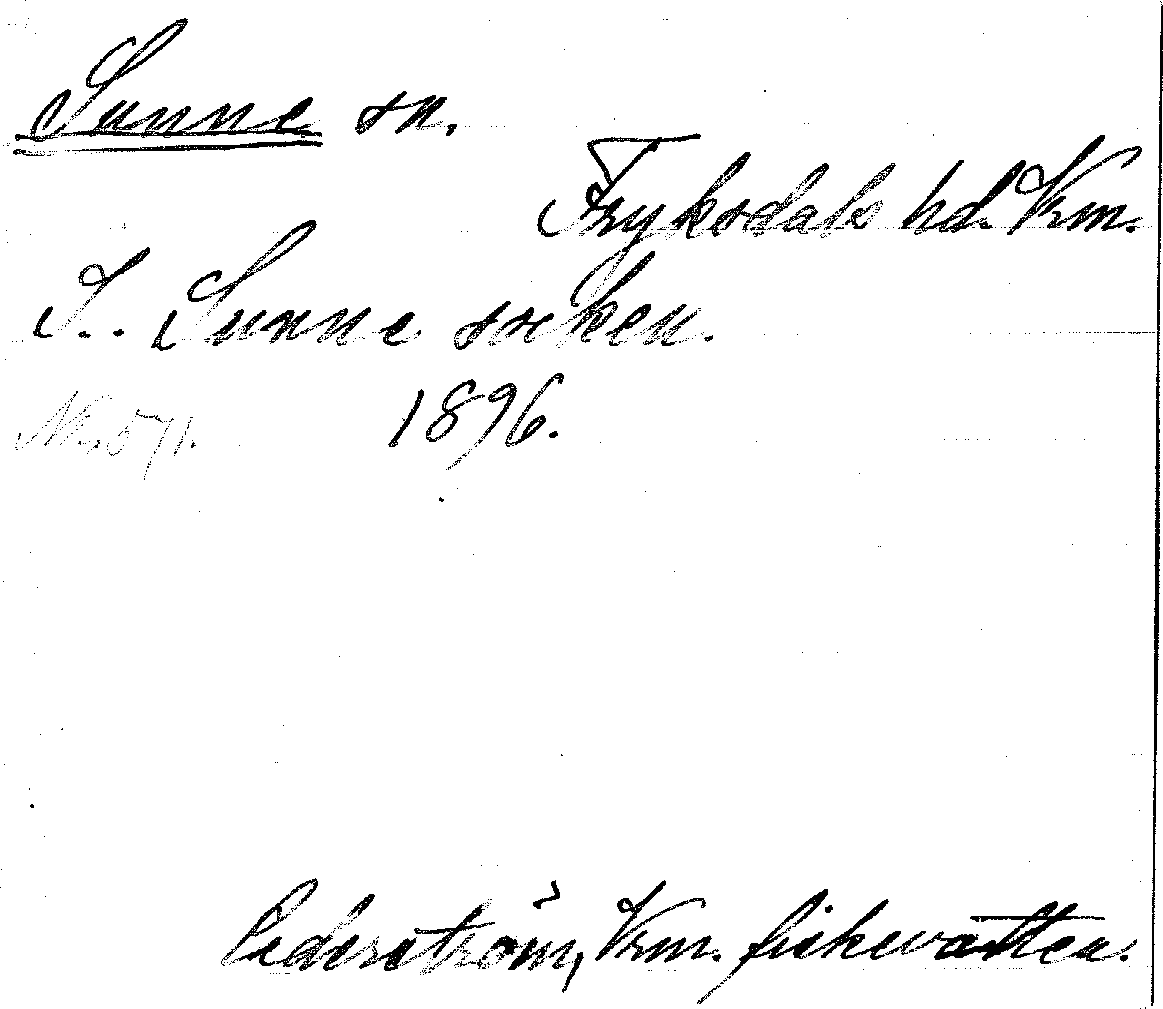 Sunne sn.
Fryksdals hd. Vrm.
S.. Sunne socken.
Nr. 571. 1896.
Cederström, Vrm. fiskevatten.